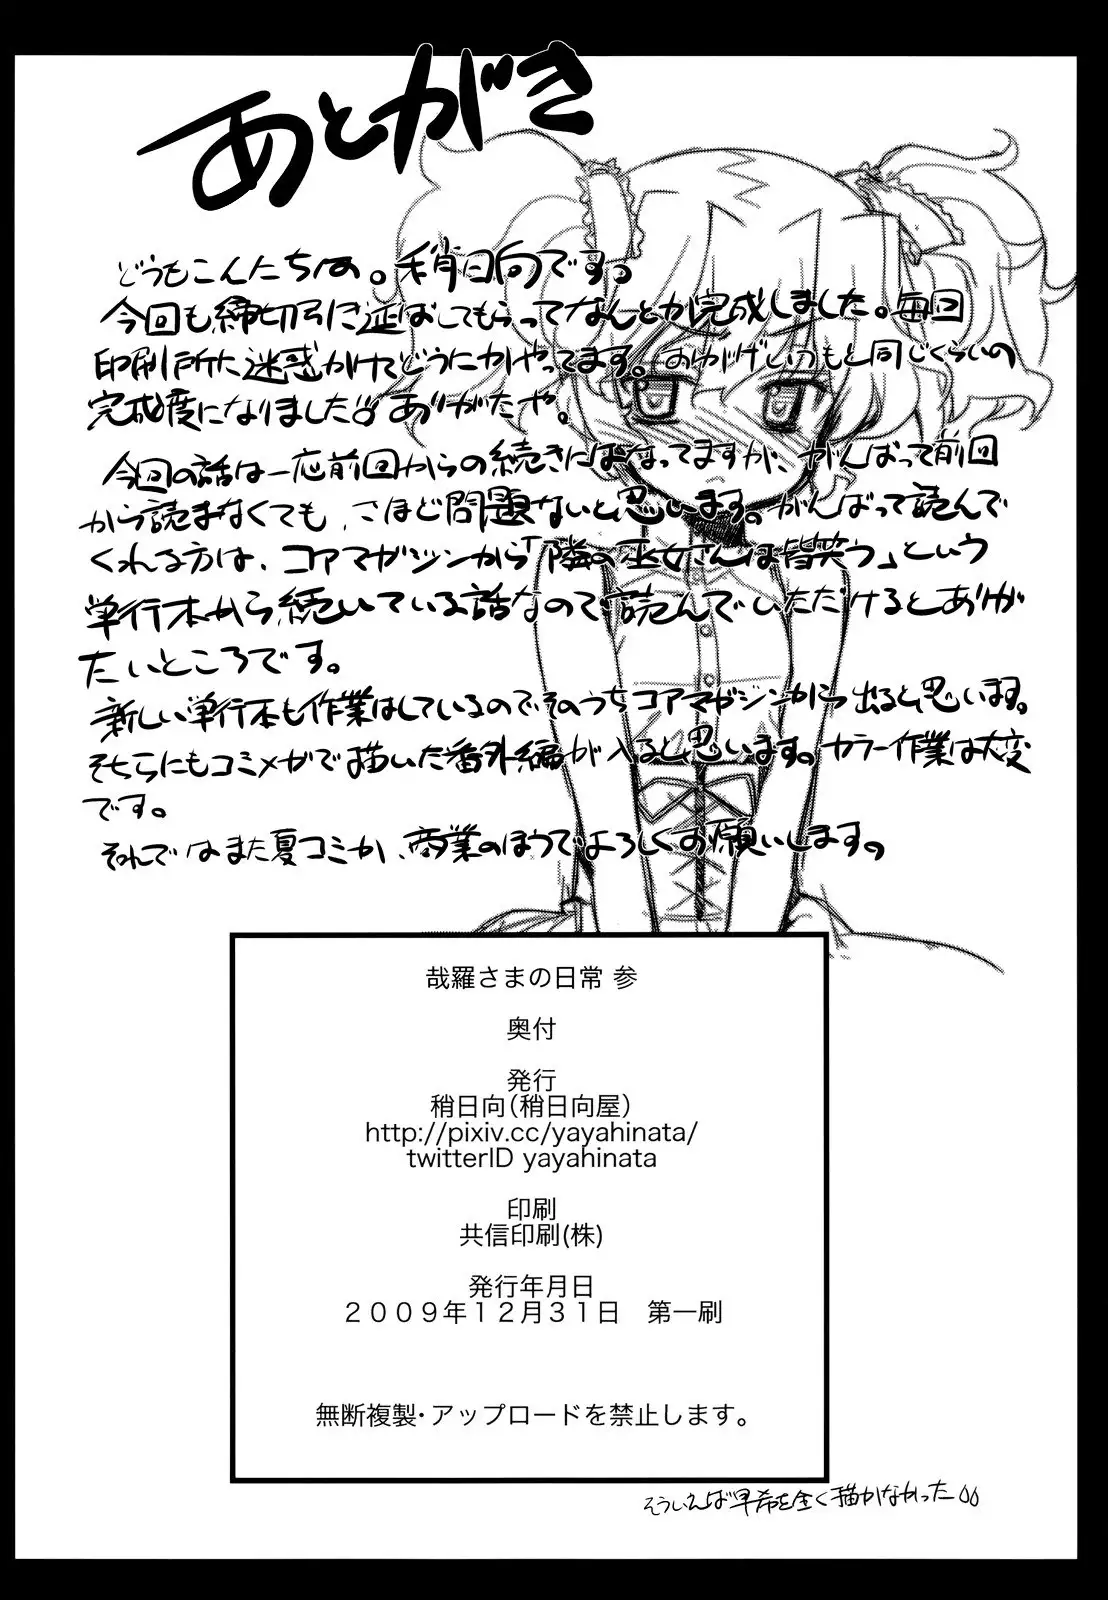 あとがき
どうもこんにちは。稍日向です。
今回も締切引き延ばしてもらってなんとか完成しました。毎回
印刷所に迷惑かけてどうにかやってます。おかげでいつもと同じくらいの
完成度になりました。ありがたや。
今回の話は一応前回からの続きにはなってますが、がんばって前回
から読まなくても、さほど問題ないと思います。がんばって読んで
くれる方は、コアマガジンから「隣の巫女さんは皆笑う」という
単行本から続いている話なので読んでいただけるとありが
たいところです。
新しい単行本も作業はしているのでそのうちコアマガジンから出ると思います。
そちらにもコミメガで描いた番外編が入ると思います。カラー作業は大変
です。
それではまた夏コミか、商業のほうでよろしくお願いします。
哉羅さまの日常 参
奥付
発行
稍日向(稍日向屋)
http://pixiv.cc/yayahinata/
twitterID yayahinata
印刷
共信印刷(株)
発行年月日
2009年12月31日　第一刷
無断複製・アップロードを禁止します。
そういえば早希を全く描かなかった